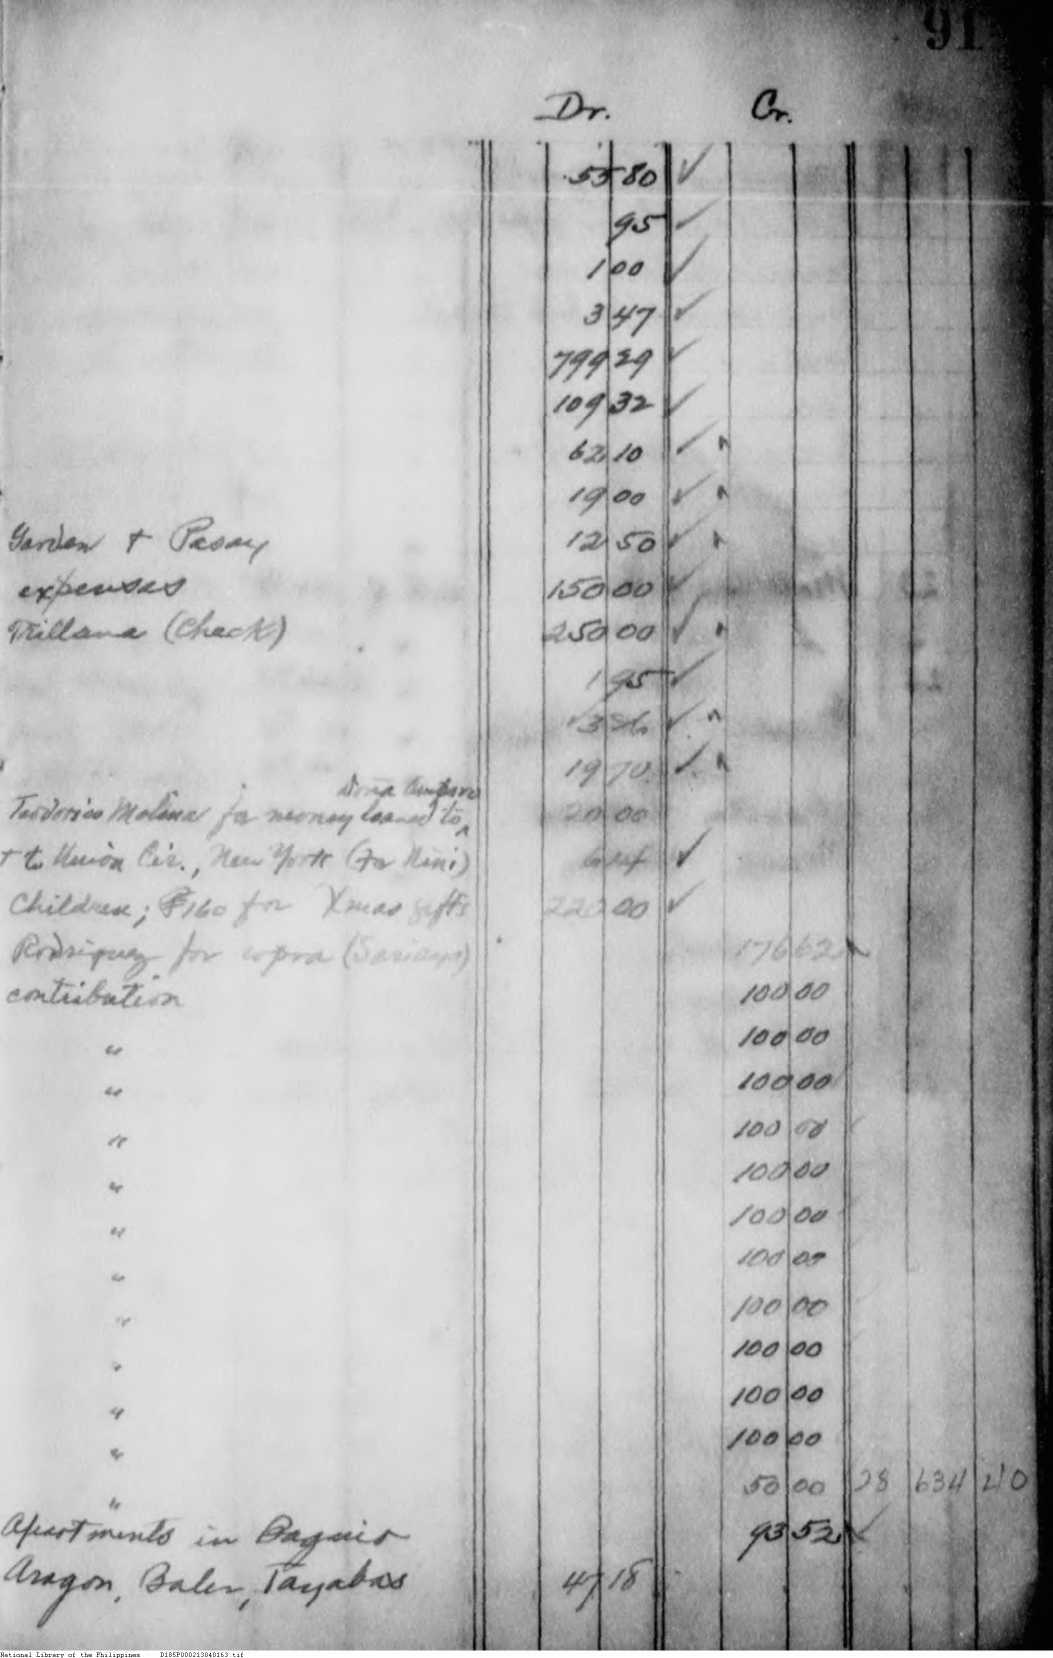 91
Dr. Cr.
55 80 ✓
95 ✓
1 00 ✓
3 47 ✓
799 29 ✓
109 32 ✓
62 10 ✓
19 00 ✓
Garden + Pasay 12 50 ✓
expenses 150 00 ✓
Trillana (Check) 250 00 ✓
1 95 ✓
3 26 ✓
19 70 ✓
Doña Amparo
Teodorico Molina for money loaned to ^ 20 00
+ to Union Cir., New York (for Nini) ✓
Children; ₱160 for Xmas gifts 220 00 ✓
Rodriquez for copra (Sariaya) 176 62
contribution 100 00
" 100 00
" 100 00
" 100 00
" 100 00
" 100 00
" 100 00
" 100 00
" 100 00
" 100 00
" 100 00
" 50 00 28 634 40
Apartments in Baguio 93 52 ✓
Aragon, Baler, Tayabas 47 18
National Library of the Philippines D185P000213040163.tif